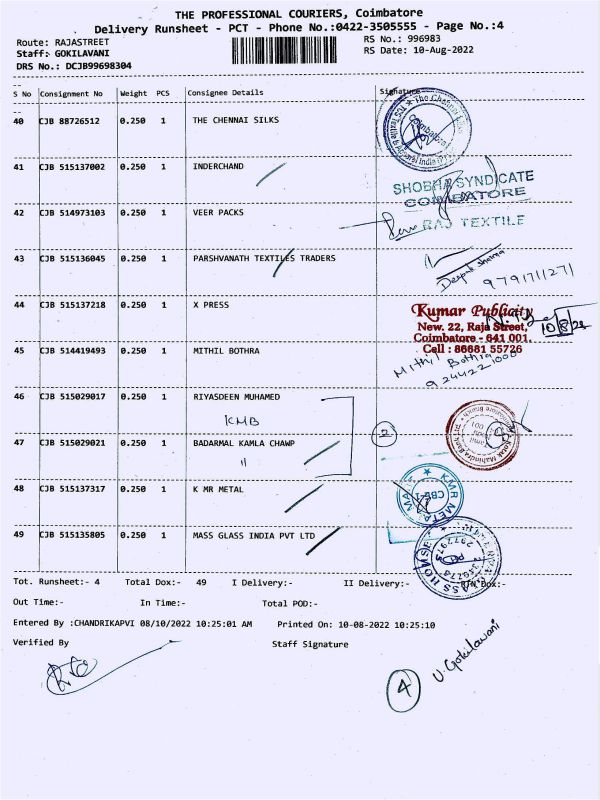 THE PROFESSIONAL COURIERS, Coimbatore
Delivery Runsheet - PCT - Phone No.:0422-3505555 - Page No.:4
Route: RAJASTREET RS No.: 996983
Staff: GOKILAVANI RS Date: 10-Aug-2022
DRS No.: DCJB99698304
S No Consignment No Weight PCS Consignee Details Signature
40 CJB 88726512 0.250 1 THE CHENNAI SILKS
Coimbatore
41 CJB 515137002 0.250 1 INDERCHAND
SHOBHA SYNDICATE
COIMBATORE
42 CJB 514973103 0.250 1 VEER PACKS
RAJ TEXTILE
43 CJB 515136045 0.250 1 PARSHVANATH TEXTILES TRADERS
Deepak Sharma
9791711271
44 CJB 515137218 0.250 1 X PRESS
Kumar Publicity
New. 22, Raja Street,
Coimbatore - 641 001.
Cell : 86681 55726
10/8/22
45 CJB 514419493 0.250 1 MITHIL BOTHRA
Mithil Bothra
9244221000
46 CJB 515029017 0.250 1 RIYASDEEN MUHAMED
KMB
2
47 CJB 515029021 0.250 1 BADARMAL KAMLA CHAWP
"
Kotak Mahindra Bank
48 CJB 515137317 0.250 1 K MR METAL
KMR METAL MART
CBE-1
49 CJB 515135805 0.250 1 MASS GLASS INDIA PVT LTD
GLASS HOUSE
Tot. Runsheet:- 4 Total Dox:- 49 I Delivery:- II Delivery:- Dox:-
Out Time:- In Time:- Total POD:-
Entered By :CHANDRIKAPVI 08/10/2022 10:25:01 AM Printed On: 10-08-2022 10:25:10
Verified By Staff Signature
4
U. Gokilavani